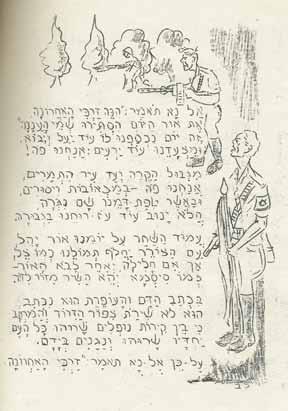 אל נא תאמר: "הנה דרכי האחרונה,
את אור היום הסתירו שמי העננה"
זה יום נכספנו לו עוד יעל ויבוא,
ומצעדנו עוד ירעים: אנחנו פה!
מגבול הקרח ועד עיר התמרים,
אנחנו פה - במכאובות ויסורים,
ובאשר טפת דמנו שם נגרה
הלא ינוב עוד עז רוחנו בגבורה.
עמוד השחר על יומנו אור יהל
עם הצורר יחלף תמולנו כמו צל,
אך אם חלילה יאחר לבא האור-
כמו סיסמא יהא השיר מדור לדור.
בכתב הדם והעופרת הוא נכתב
הוא לא שירת צפור הדרור והמרחב
כי בין קירות נופלים שרוהו כל העם
יחדיו שרוהו ונגנים בידם.
על-כן אל-נא תאמר: "דרכי האחרונה".